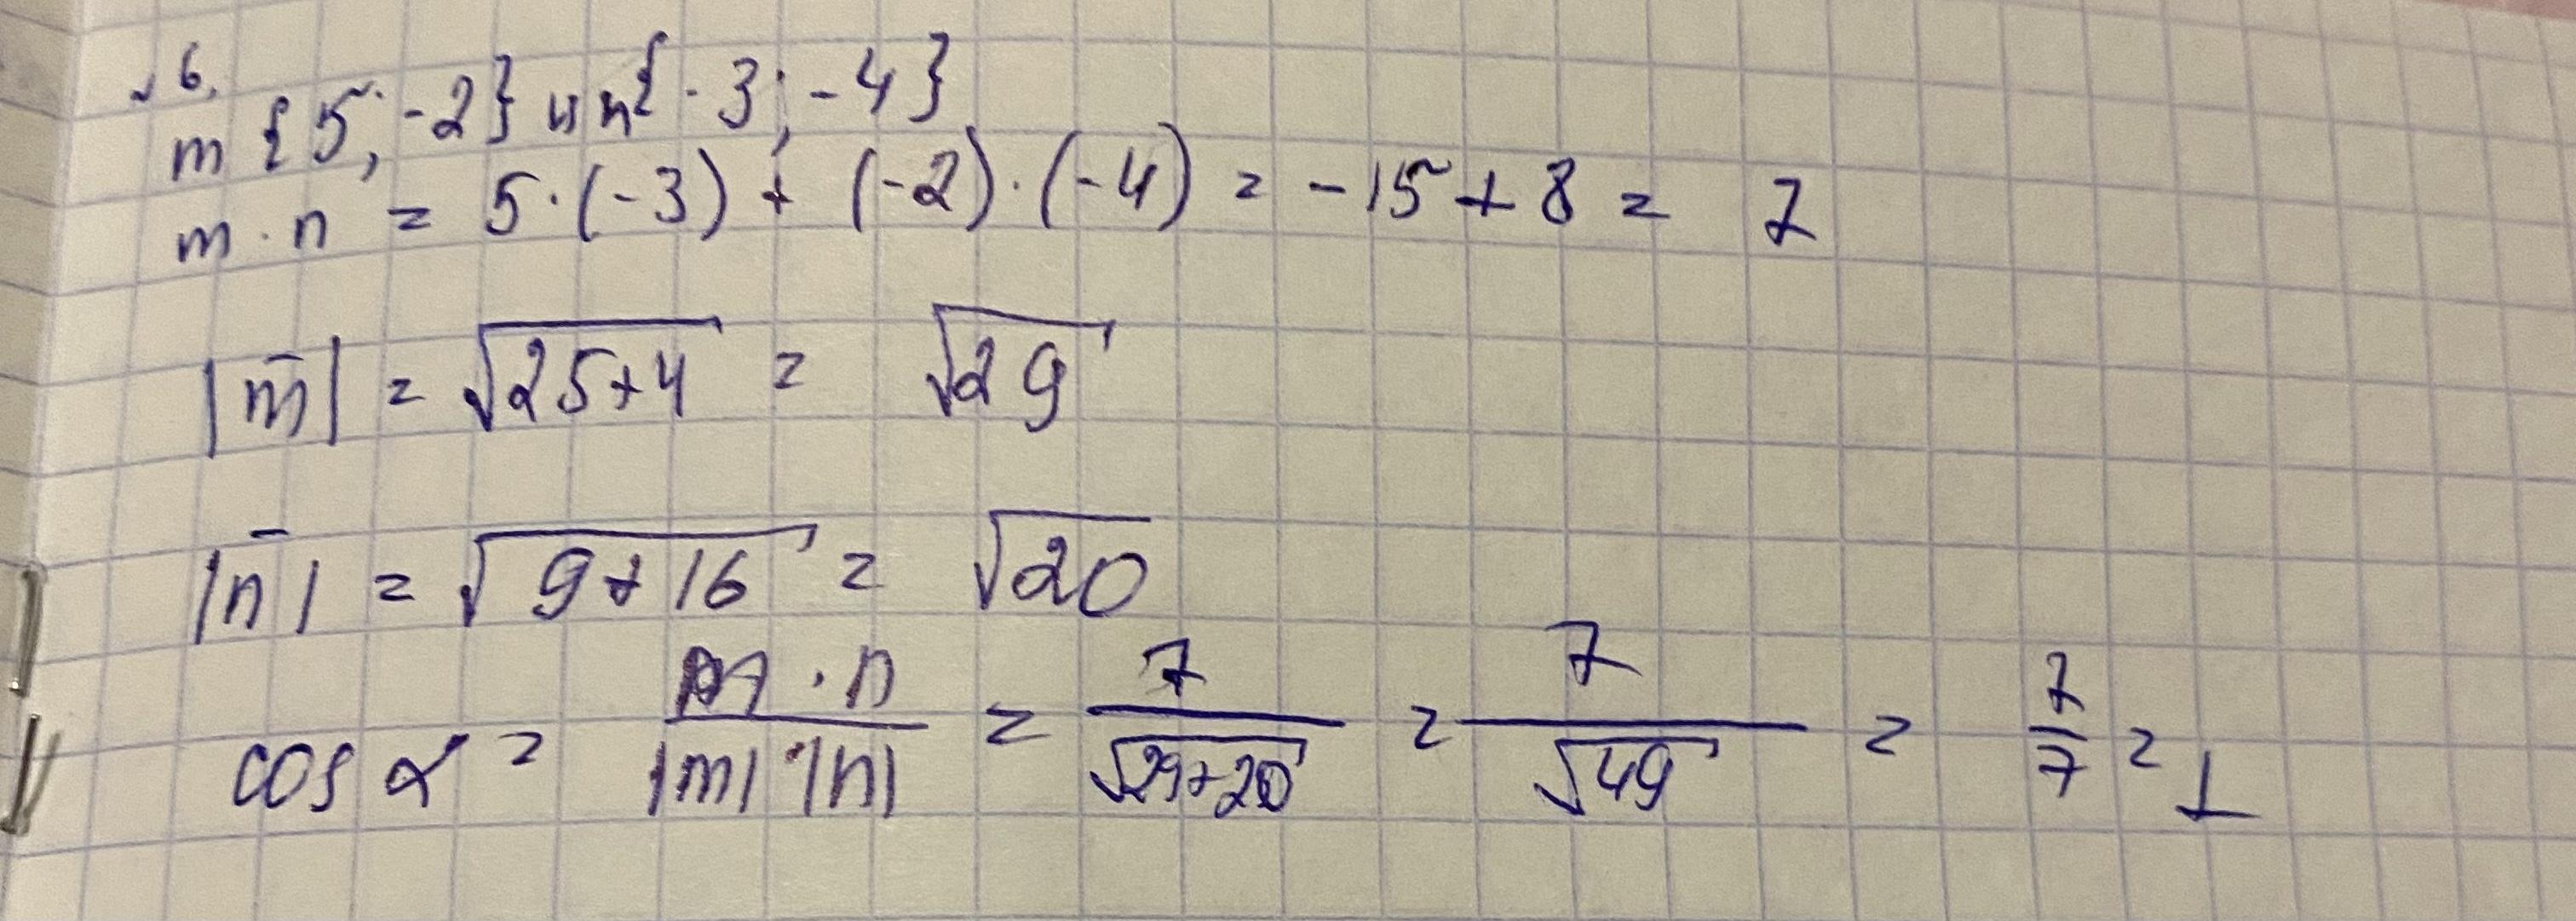 №6.
m {5; -2} и n{-3; -4}
m · n = 5·(-3) + (-2)·(-4) = -15 + 8 = 7
|m̅| = √25+4 = √29
|n̅| = √9+16 = √20
cos α = m · n / |m| · |n| = 7 / √29+20 = 7 / √49 = 7/7 = 1